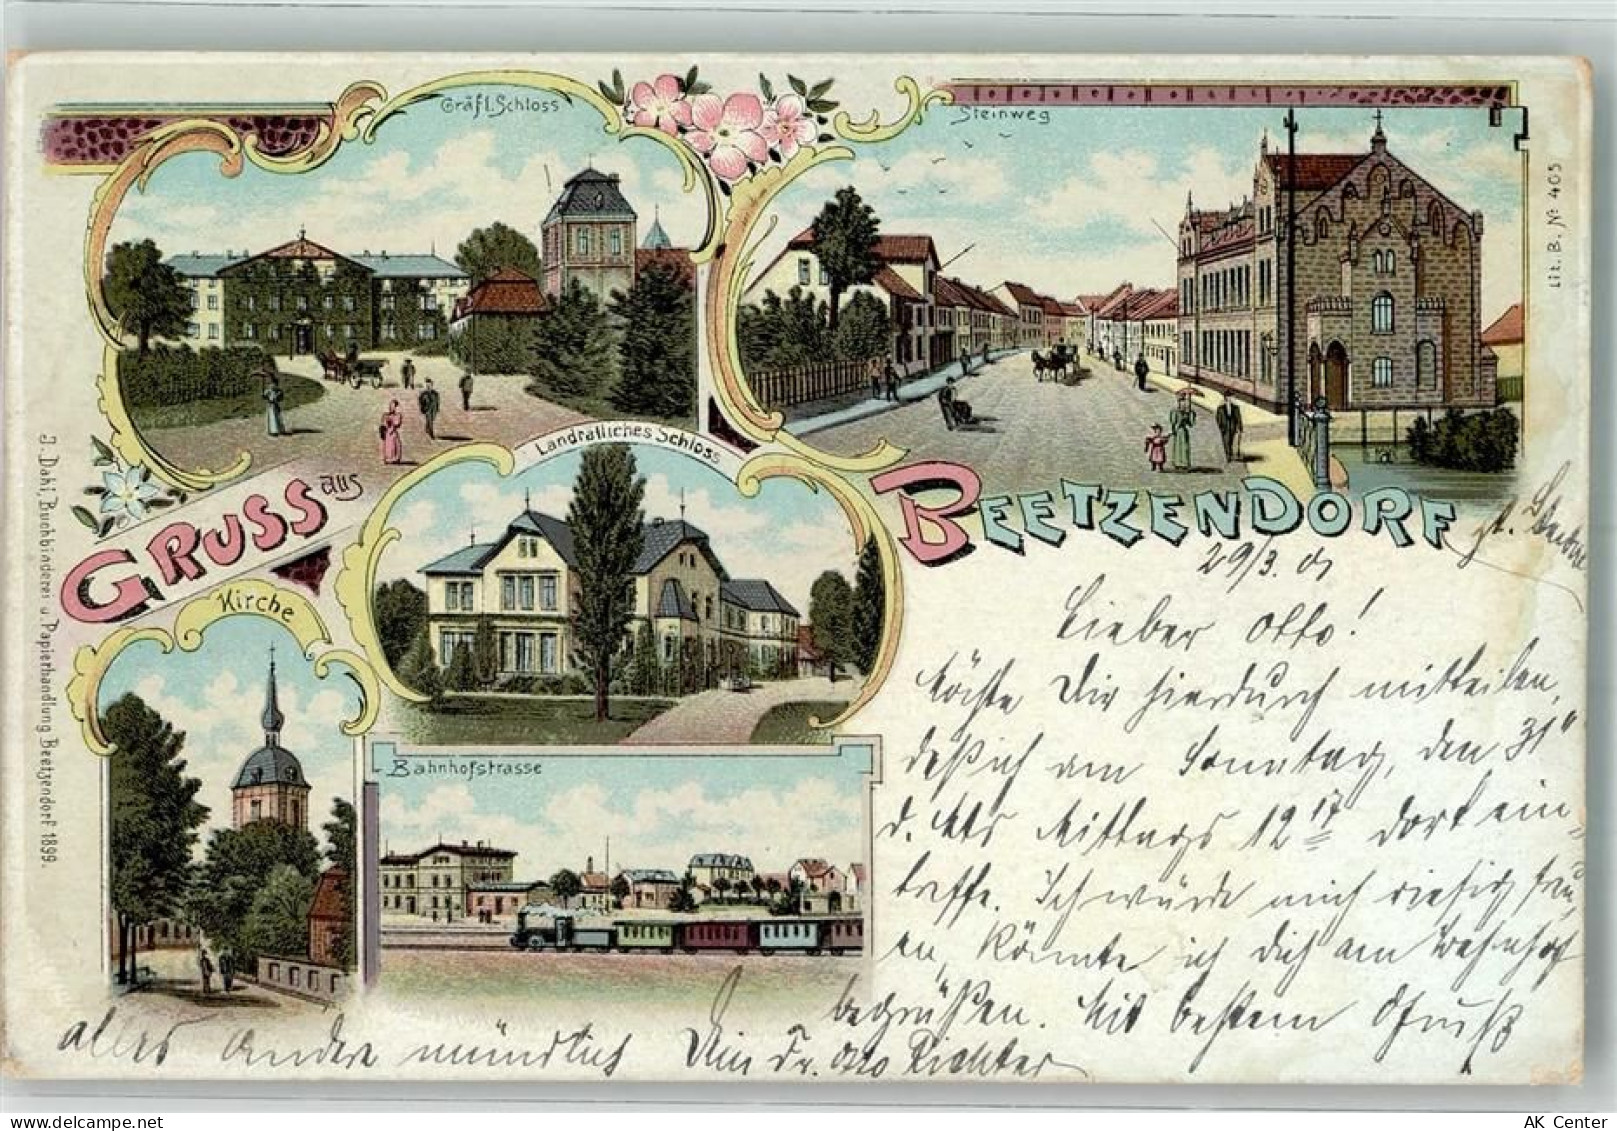 Gräfl. Schloss
Steinweg
Landrätliches Schloss
GRUSS aus
BEETZENDORF
Kirche
Bahnhofstrasse
J. Dahl, Buchbinderei u. Papierhandlung Beetzendorf 1899.
Lit. B. № 405
29/3. 01
Lieber Otto!
Möchte Dir hierdurch mitteilen,
daß ich am Sonntag, den 31"
d. Mts Mittags 12 17 dort ein-
treffe. Ich würde mich riesig freu-
en, könnte ich Dich am Bahnhof
begrüßen. Mit bestem Gruß
alles Andere mündlich Dein Fr. Otto Richter
AK Center